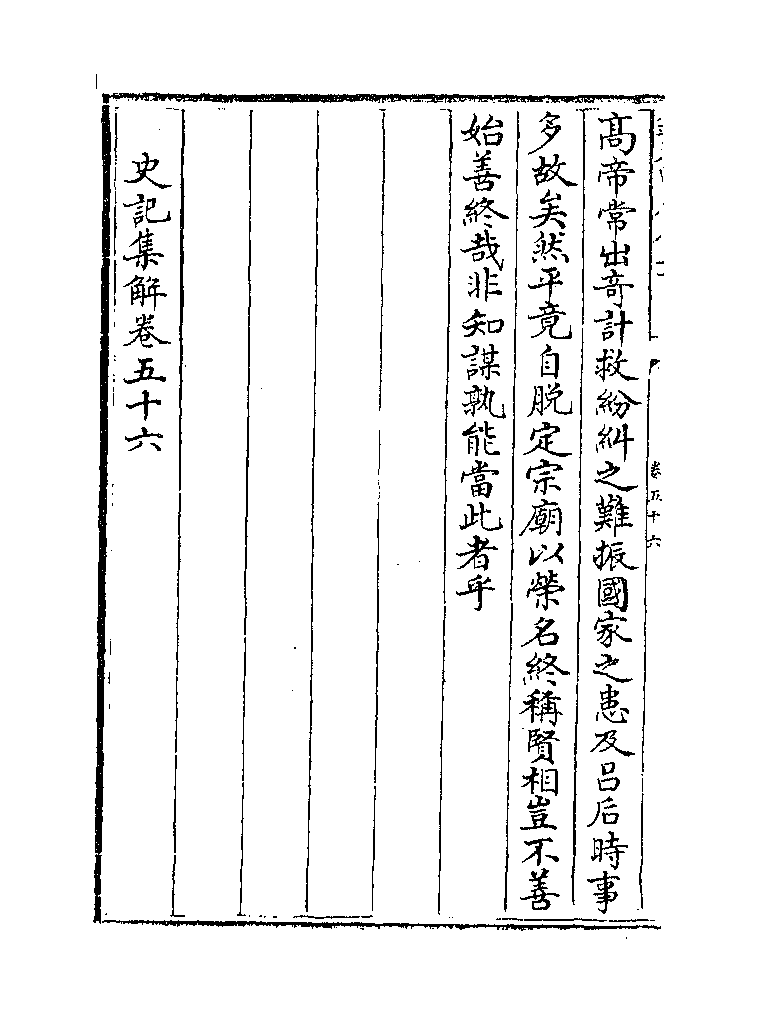 高帝常出奇計救紛糾之難振國家之患及吕后時事
多故矣然平竟自脱定宗廟以榮名終稱賢相豈不善
始善終哉非知謀孰能當此者乎
史記集解卷五十六
卷五十六